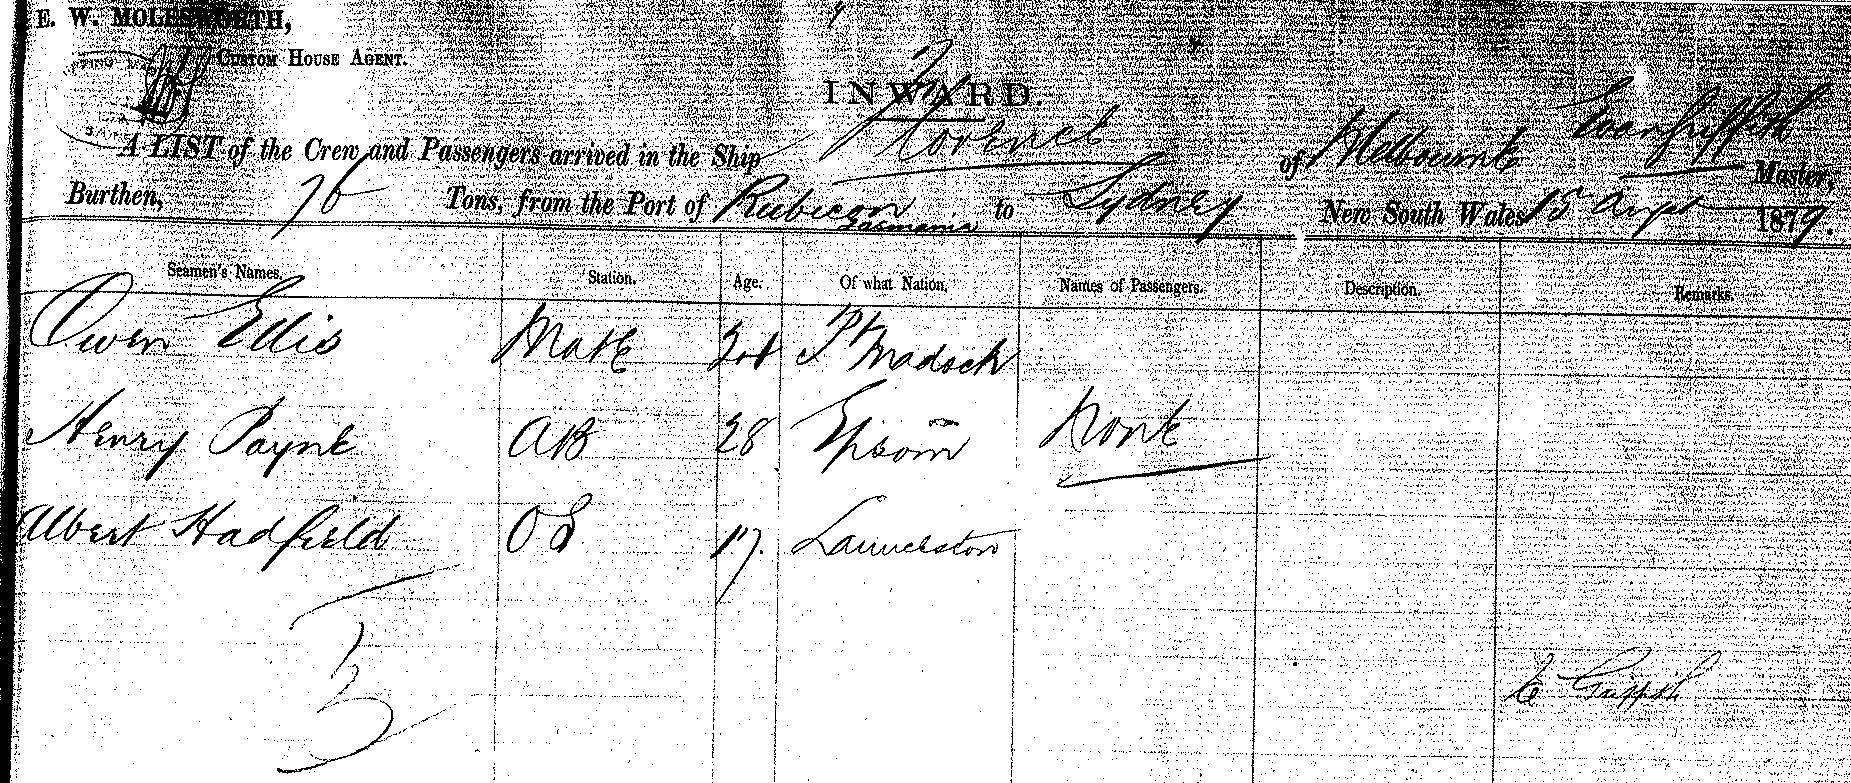 E. W. MOLESWORTH,
CUSTOM HOUSE AGENT.
INWARD.
A LIST of the Crew and Passengers arrived in the Ship Florence of Melbourne Evan Griffith Master,
Burthen, 76 Tons, from the Port of Rubicon Tasmania to Sydney New South Wales 15 Augt 1879.
Seamen's Names. Station. Age. Of what Nation. Names of Passengers. Description. Remarks.
Owen Ellis Mate P Madock
Henry Payne AB 28 Epsom None
Albert Hadfield OS 17. Launceston
3
E Griffith